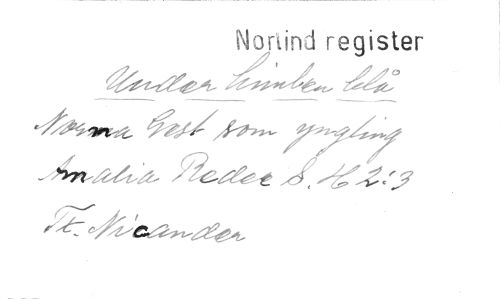 Norlind register
Under himben blå
Norna Gest som yngling
Amalia Reder S. H 2:3
Tr. Nicander